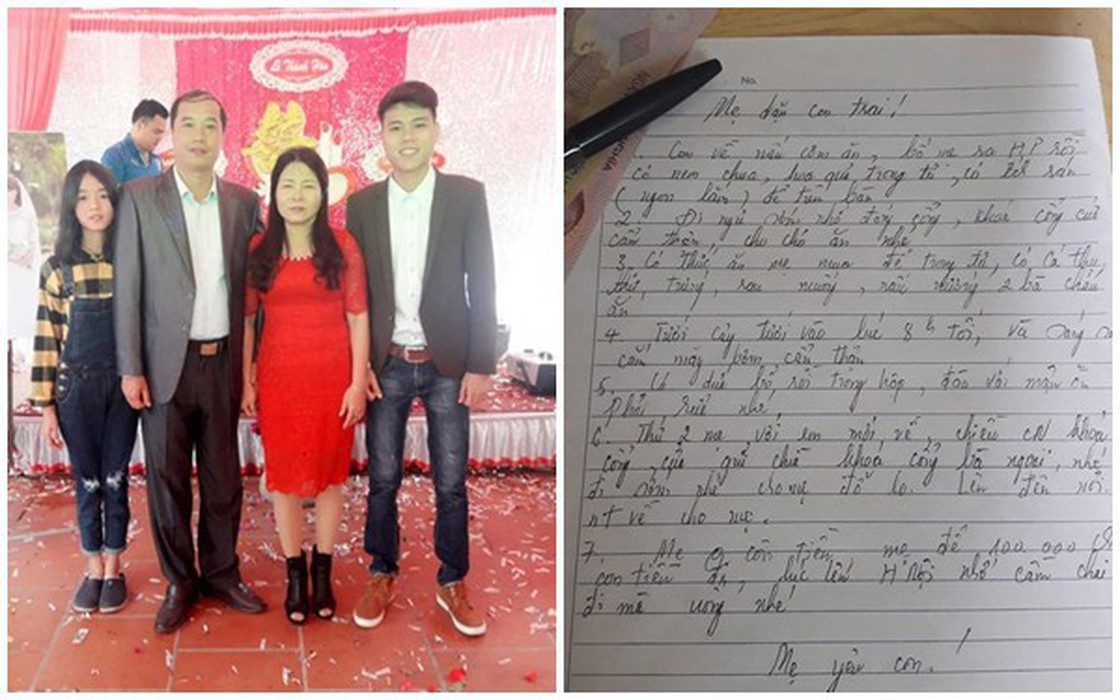 Lễ Thành Hôn
No.
Mẹ dặn con trai!
1. Con về nấu cơm ăn, bố mẹ ra HP rồi
có nem chua, hoa quả trong tủ, có sắn
(ngon lắm) để trên bàn
2. Đi ngủ sớm nhớ đóng cổng, khoá cổng cửa
cẩn thận, cho chó ăn nhé
3. Có thức ăn mẹ mua để trong tủ, có cá thu,
thịt, trứng, rau muống, nấu nướng 2 bà cháu
ăn
4. Tưới cây tưới vào lúc 8h tối, và sáng
cắm máy bơm cẩn thận
5. Có dưa bổ rồi trong hộp, đào với mận ăn
phải rửa nhé
6. Thứ 2 mẹ với em mới về, chiều CN khoá
cổng, cửa gửi chìa khoá cổng bà ngoại, nhớ
đi sớm nhé cho mẹ đỡ lo. Lên đến nơi
nt về cho mẹ.
7. Mẹ còn tiền mẹ để 100.000
con tiền đò, lúc lên H Nội nhớ cầm chai
đi mà uống nhé
Mẹ yêu con!